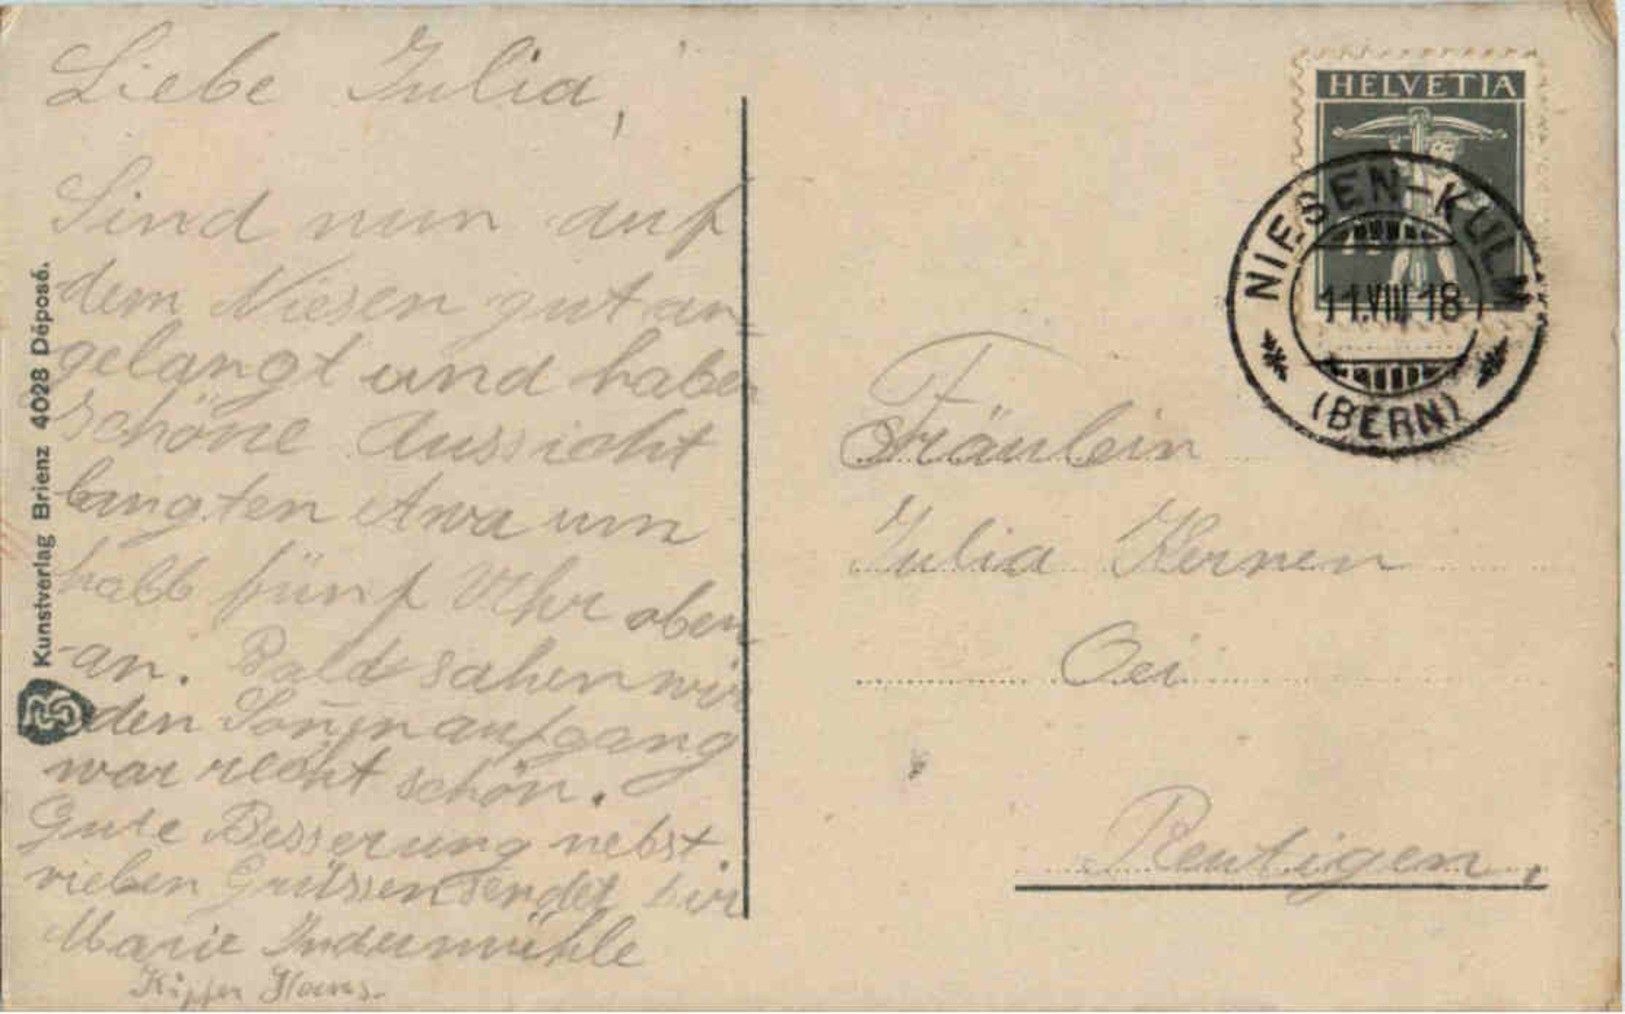 Liebe Julia,
Sind nun auf
dem Niesen gut an-
gelangt und haben
schöne Aussicht
langten um
halb fünf Uhr oben
an. Bald sahen wir
den Sonnenaufgang
war recht schön.
Gute Besserung nebst
vielen Grüssen sendet Dir
Marie Indermühle
Kipfer Hans.
Kunstverlag Brienz 4028 Déposé.
HELVETIA
NIESEN-KULM
11.VIII 18
(BERN)
Fräulein
Julia Kernen
Oei
Reutigen,